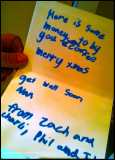 Here is some
money to by
you
merry xmas
get well soon,
Nan
from Zach and
Charli, Phil and